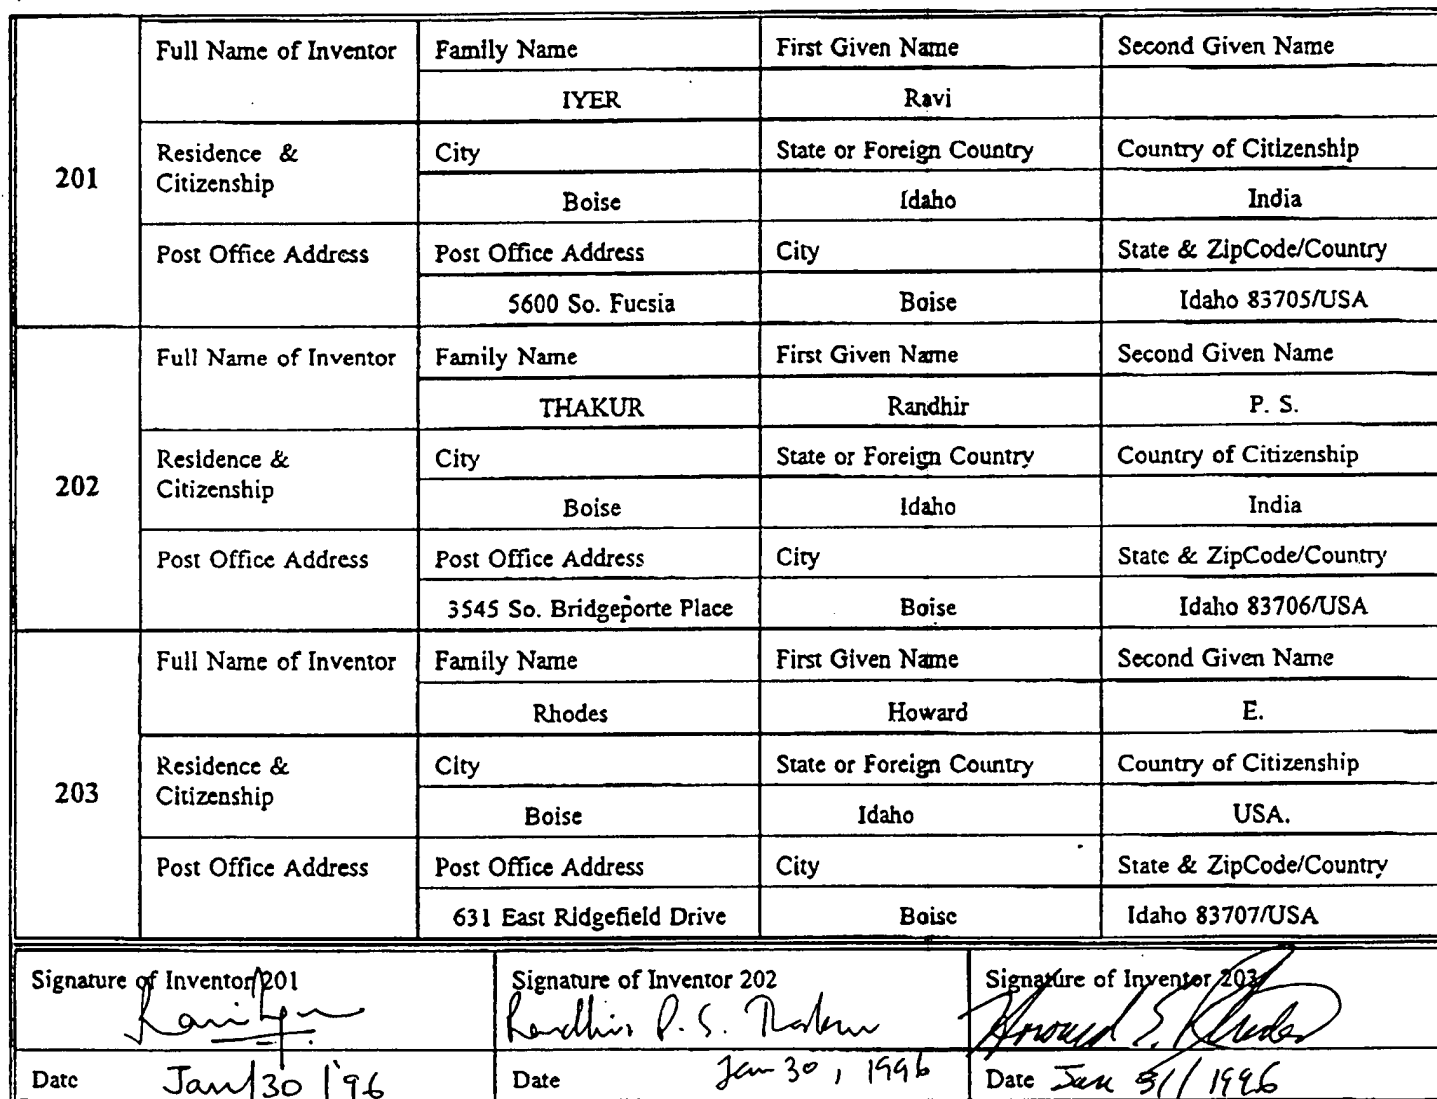 Full Name of Inventor Family Name First Given Name Second Given Name
IYER Ravi
201
Residence & Citizenship City State or Foreign Country Country of Citizenship
Boise Idaho India
Post Office Address Post Office Address City State & ZipCode/Country
5600 So. Fucsia Boise Idaho 83705/USA
Full Name of Inventor Family Name First Given Name Second Given Name
THAKUR Randhir P. S.
202
Residence & Citizenship City State or Foreign Country Country of Citizenship
Boise Idaho India
Post Office Address Post Office Address City State & ZipCode/Country
3545 So. Bridgeporte Place Boise Idaho 83706/USA
Full Name of Inventor Family Name First Given Name Second Given Name
Rhodes Howard E.
203
Residence & Citizenship City State or Foreign Country Country of Citizenship
Boise Idaho USA.
Post Office Address Post Office Address City State & ZipCode/Country
631 East Ridgefield Drive Boise Idaho 83707/USA
Signature of Inventor 201 Signature of Inventor 202 Signature of Inventor 203
Ravi Iyer Randhir P. S. Thakur Howard E. Rhodes
Date Jan/30/'96 Date Jan 30, 1996 Date Jan 31/1996